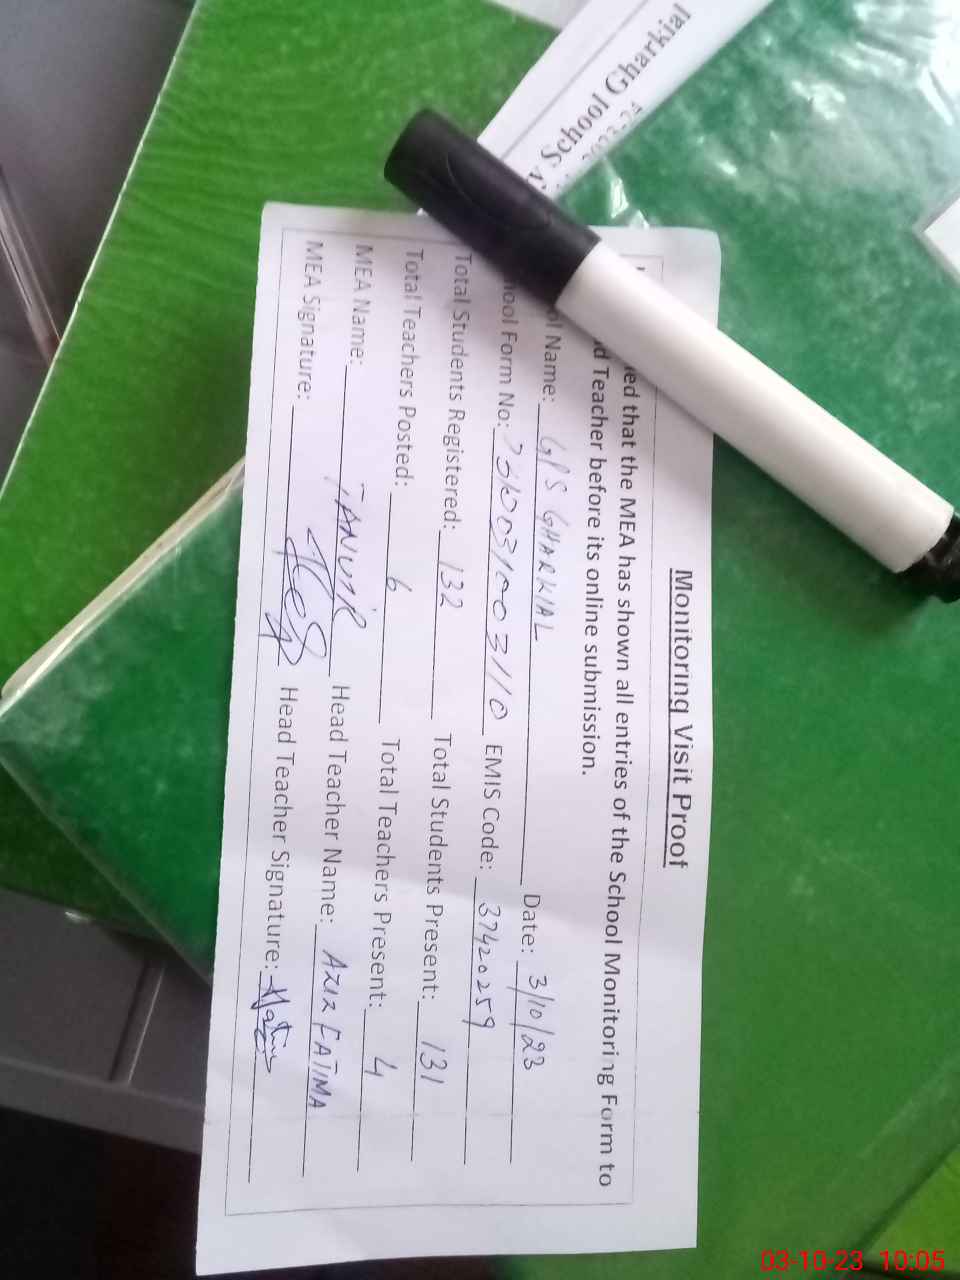 y School Gharkial
2023-24
Monitoring Visit Proof
ed that the MEA has shown all entries of the School Monitoring Form to
d Teacher before its online submission.
ol Name: GPS GHARKIAL Date: 3/10/23
ool Form No: EMIS Code: 37420259
Total Students Registered: 132 Total Students Present: 131
Total Teachers Posted: 6 Total Teachers Present: 4
MEA Name: TANVIR Head Teacher Name: AZIZ FATIMA
MEA Signature: Head Teacher Signature:
03-10-23 10:05